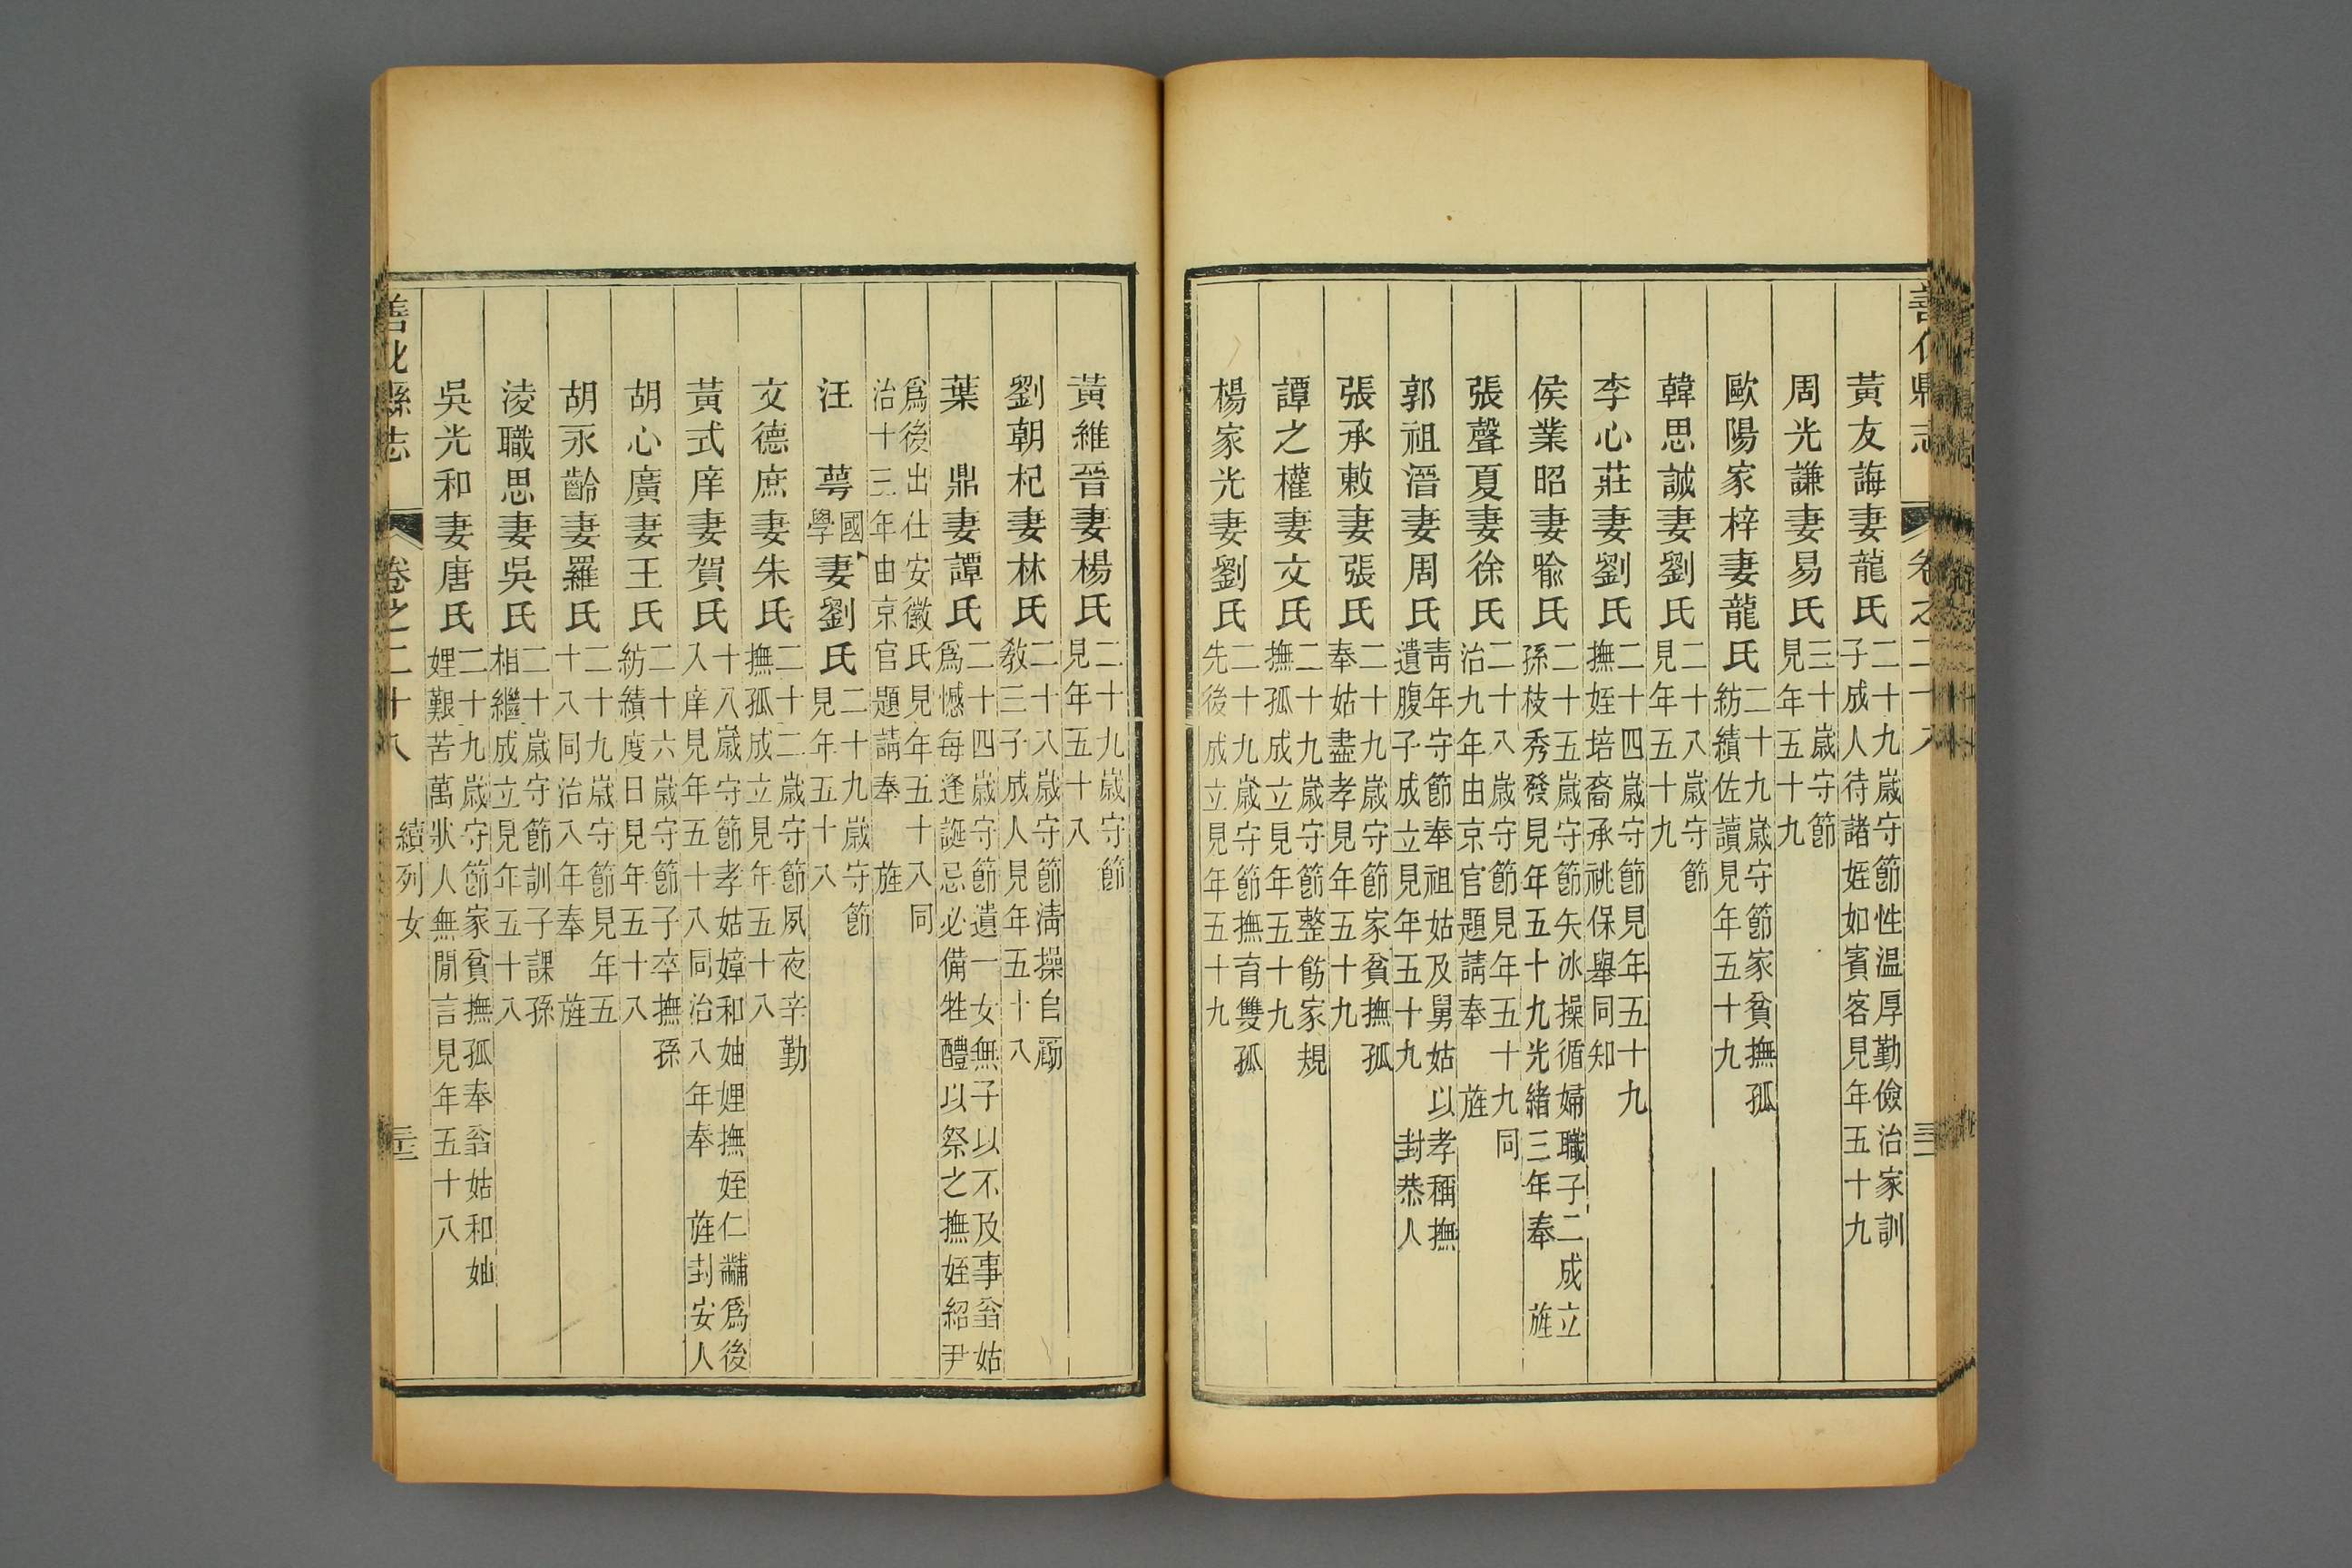 善化縣志 卷之二十八
黃友誨妻龍氏 二十九歲守節性温厚勤儉治家訓
子成人待諸姪如賓客見年五十九
周光謙妻易氏 三十歲守節
見年五十九
歐陽家梓妻龍氏 二十九歲守節家貧撫孤
紡績佐讀見年五十九
韓思誠妻劉氏 二十八歲守節
見年五十九
李心莊妻劉氏 二十四歲守節見年五十九
撫姪培裔承祧保舉同知
侯業昭妻喻氏 二十五歲守節矢冰操循婦職子二成立
孫枝秀發見年五十九光緒三年奉 旌
張聲夏妻徐氏 二十八歲守節見年五十九同
治九年由京官題請奉 旌
郭祖濳妻周氏 靑年守節奉祖姑及舅姑以孝稱撫
遺腹子成立見年五十九 封恭人
張承敕妻張氏 二十九歲守節家貧撫孤
奉姑盡孝見年五十九
譚之權妻文氏 二十九歲守節整飭家規
撫孤成立見年五十九
楊家光妻劉氏 二十九歲守節撫育雙孤
先後成立見年五十九
黃維晉妻楊氏 二十九歲守節
見年五十八
劉朝杞妻林氏 二十八歲守節清操自勵
教三子成人見年五十八
葉 鼎妻譚氏 二十四歲守節遺一女無子以不及事翁姑
爲憾每逢誕忌必備牲醴以祭之撫姪紹尹
爲後出仕安徽氏見年五十八同
治十三年由京官題請奉 旌
汪 萼 國
學 妻劉氏 二十九歲守節
見年五十八
文德庶妻朱氏 二十二歲守節夙夜辛勤
撫孤成立見年五十八
黃式庠妻賀氏 十八歲守節孝姑嫜和妯娌撫姪仁黼爲後
入庠見年五十八同治八年奉 旌封安人
胡心廣妻王氏 二十六歲守節子卒撫孫
紡績度日見年五十八
胡永齡妻羅氏 二十九歲守節見年五
十八同治八年奉 旌
淩職思妻吳氏 二十歲守節訓子課孫
相繼成立見年五十八
吳光和妻唐氏 二十九歲守節家貧撫孤奉翁姑和妯
娌艱苦萬狀人無閒言見年五十八
善化縣志 卷之二十八 續列女